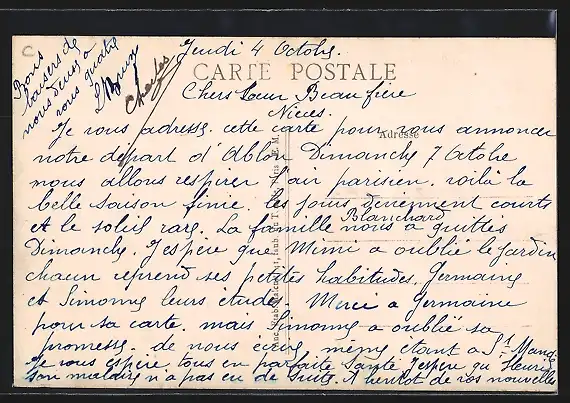 Jeudi 4 Octobre.
CARTE POSTALE
Chers Sœur Beau frère
Nièces.
Adresse
Je vous adresse cette carte pour vous annoncer
notre départ d'Ablon Dimanche 7 Octobre
nous allons respirer l'air parisien. voilà la
belle saison finie. les jours deviennent courts
Blanchard
et le soleil rare. La famille nous a quittés
Dimanche. J'espère que Mimi a oublié le jardin
chacun reprend ses petites habitudes. Germaine
et Simonne leurs études. Merci a Germaine
pour sa carte. mais Simonne a oublié sa
promesse. de nous même étant a St Mandé
Je vous espère tous en parfaite santé J'espère qu'Henri
son malaise n'a pas eu de suite. A bientot de vos nouvelles
Bons
baisers de
nous deux a
vous quatre
Charles